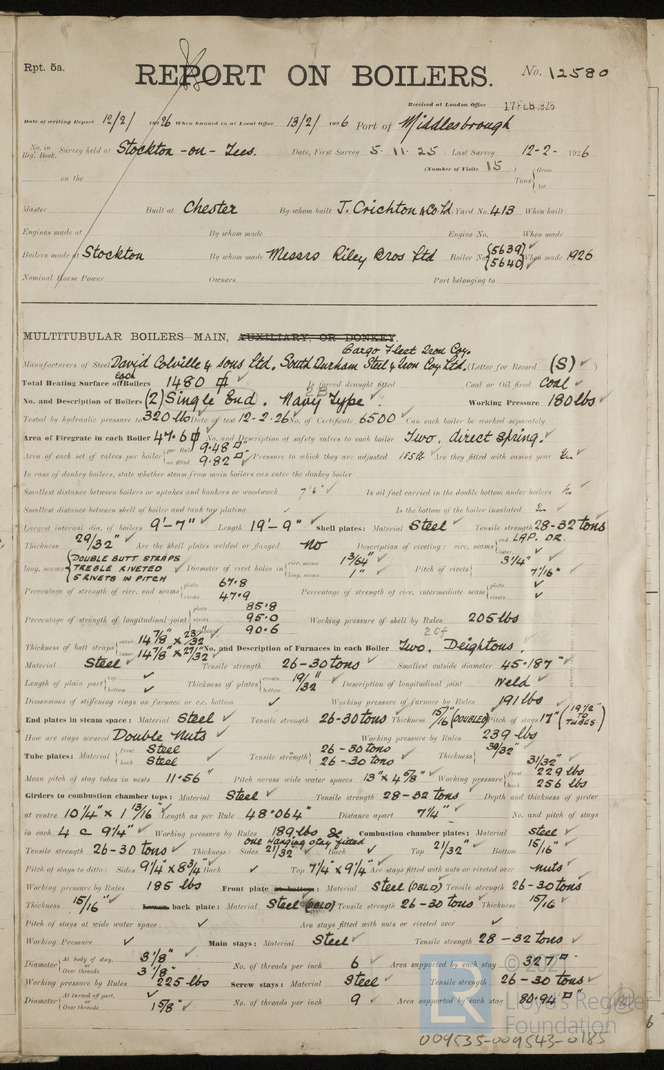 Rpt. 5a.
REPORT ON BOILERS.
No. 12580
Received at London Office 17 FEB 1926
Date of writing Report 12/2/ 1926 When handed in at Local Office 13/2/ 1926 Port of Middlesbrough
No. in Reg. Book. Survey held at Stockton-on-Tees. Date, First Survey 5.11.25 Last Survey 12-2-1926
(Number of Visits 15)
on the Tons { Gross Net
Master Built at Chester By whom built J. Crichton & Co Ld. Yard No. 413 When built
Engines made at By whom made Engine No. When made
Boilers made at Stockton By whom made Messrs Riley Bros Ltd Boiler No. {5639 5640} When made 1926
Nominal Horse Power Owners Port belonging to
MULTITUBULAR BOILERS MAIN, AUXILIARY, OR DONKEY.
Cargo Fleet Iron Coy.
Manufacturers of Steel David Colville & Sons Ltd. South Durham Steel & Iron Coy Ltd. (Letter for Record (S))
Total Heating Surface of Each Boilers 1480 Is forced draught fitted Coal or Oil fired Coal
No. and Description of Boilers (2) Single End. Navy Type. Working Pressure 180 lbs
Tested by hydraulic pressure to 320 lbs Date of test 12-2-26 No. of Certificate 6500 Can each boiler be worked separately
Area of Firegrate in each Boiler 47.6 No. and Description of safety valves to each boiler Two, direct spring.
Area of each set of valves per boiler { per Rule 9.48 as fitted 9.82 Pressure to which they are adjusted 185 lb Are they fitted with easing gear
In case of donkey boilers, state whether steam from main boilers can enter the donkey boiler
Smallest distance between boilers or uptakes and bunkers or woodwork 7'6" Is oil fuel carried in the double bottom under boilers
Smallest distance between shell of boiler and tank top plating Is the bottom of the boiler insulated
Largest internal dia. of boilers 9'-7" Length 19'-9" Shell plates: Material Steel Tensile strength 28-32 tons
Thickness 29/32" Are the shell plates welded or flanged No Description of riveting: circ. seams { end LAP. DR. inter.
long. seams { DOUBLE BUTT STRAPS TREBLE RIVETED 5 RIVETS IN PITCH Diameter of rivet holes in { circ. seams 1 3/64" long. seams 1" Pitch of rivets { 3 1/4" 7 7/16"
Percentage of strength of circ. end seams { plate 67.8 rivets 47.9 Percentage of strength of circ. intermediate seam { plate rivets
Percentage of strength of longitudinal joint { plate 85.8 rivets 95.0 combined 90.6 Working pressure of shell by Rules 205 lbs
Thickness of butt straps { outer 14 7/8" x 23/32" inner 14 7/8" x 27/32" No. and Description of Furnaces in each Boiler Two, Deightons.
Material Steel Tensile strength 26-30 tons Smallest outside diameter 45.187"
Length of plain part { top bottom Thickness of plates { crown bottom 19/32" Description of longitudinal joint Weld
Dimensions of stiffening rings on furnace or c.c. bottom Working pressure of furnace by Rules 191 lbs
End plates in steam space: Material Steel Tensile strength 26-30 tons Thickness 15/16" (DOUBLED) Pitch of stays 17" (19 1/2" TO TUBES)
How are stays secured Double Nuts Working pressure by Rules 239 lbs
Tube plates: Material { front Steel back Steel Tensile strength { 26-30 tons 26-30 tons Thickness { 30/32" 31/32"
Mean pitch of stay tubes in nests 11.56" Pitch across wide water spaces 13" x 4 5/8" Working pressure { front 229 lbs back 256 lbs
Girders to combustion chamber tops: Material Steel Tensile strength 28-32 tons Depth and thickness of girder
at centre 10 1/4" x 1 13/16" Length as per Rule 48.064" Distance apart 7 1/4" No. and pitch of stays
in each 4 @ 9 1/4" Working pressure by Rules 189 lbs & Combustion chamber plates: Material Steel
one hanging stay fitted
Tensile strength 26-30 tons Thickness: Sides 21/32" Back Top 21/32" Bottom 15/16"
Pitch of stays to ditto: Sides 9 1/4" x 8 3/4" Back Top 7 1/4" x 9 1/4" Are stays fitted with nuts or riveted over nuts
Working pressure by Rules 185 lbs Front plate at bottom: Material Steel (DBLD) Tensile strength 26-30 tons
Thickness 15/16" Lower back plate: Material Steel (DBLD) Tensile strength 26-30 tons Thickness 15/16"
Pitch of stays at wide water space Are stays fitted with nuts or riveted over
Working Pressure Main stays: Material Steel Tensile strength 28-32 tons
Diameter { At body of stay, 3 1/8" or Over threads 3 1/8" No. of threads per inch 6 Area supported by each stay 327
Working pressure by Rules 225 lbs Screw stays: Material Steel Tensile strength 26-30 tons
Diameter { At turned off part, or Over threads 1 5/8" No. of threads per inch 9 Area supported by each stay 80.94
© 2021
LR
Lloyd's Register
Foundation
009535-009543-0185